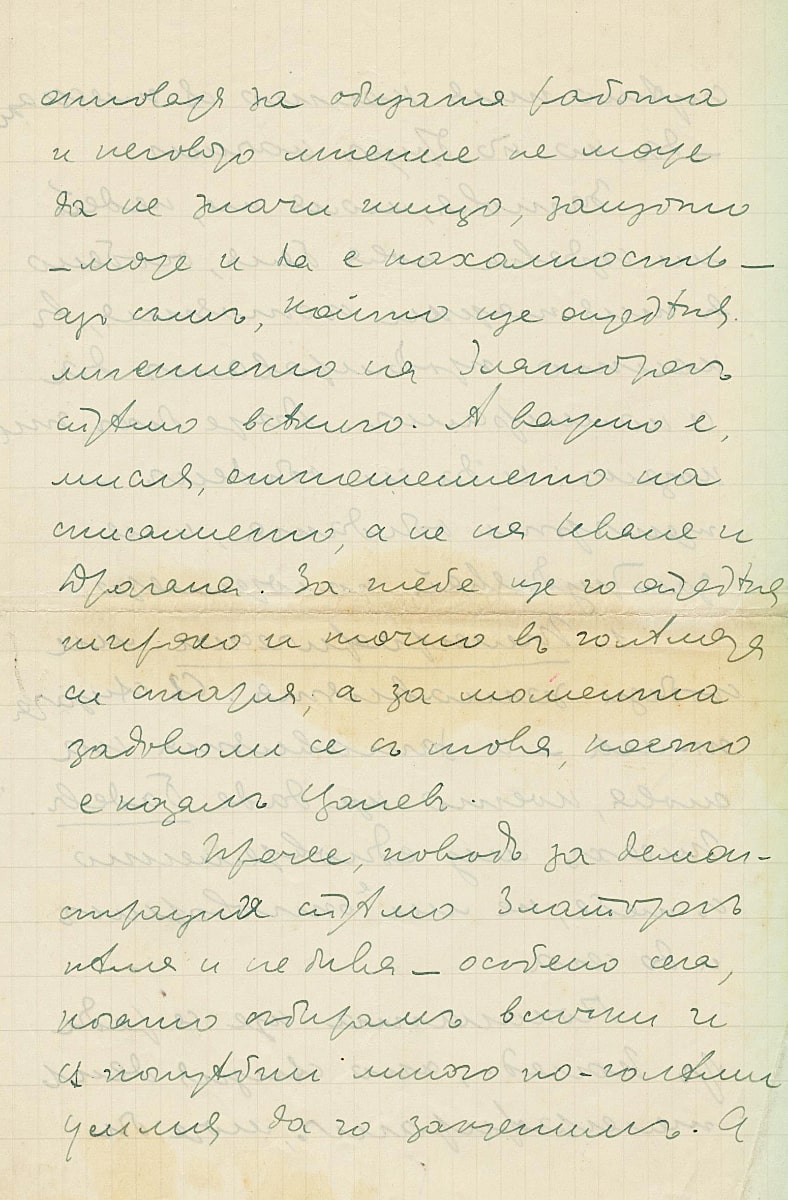 отговаря за общата работа
и неговото мнение не може
да не значи нищо, защото
– може и да е нахалность –
азъ съмъ, който ще опредѣля
мнението на Златорогъ
спрѣмо всѣкиго. А важно е,
мисля, отношението на
списанието, а не на Ивана и
Драгана. За тебе ще го опредѣля
широко и точно въ голѣмата
си статия; а за момента
задоволи се съ това, което
е казалъ Цаневъ.
Прочее, поводъ за демон-
страция спрѣмо Златорогъ
нѣма и не бива – особено сега,
когато събирамъ всички и
сѫ потрѣбни много по-голѣми
усилия да го закрепимъ. А